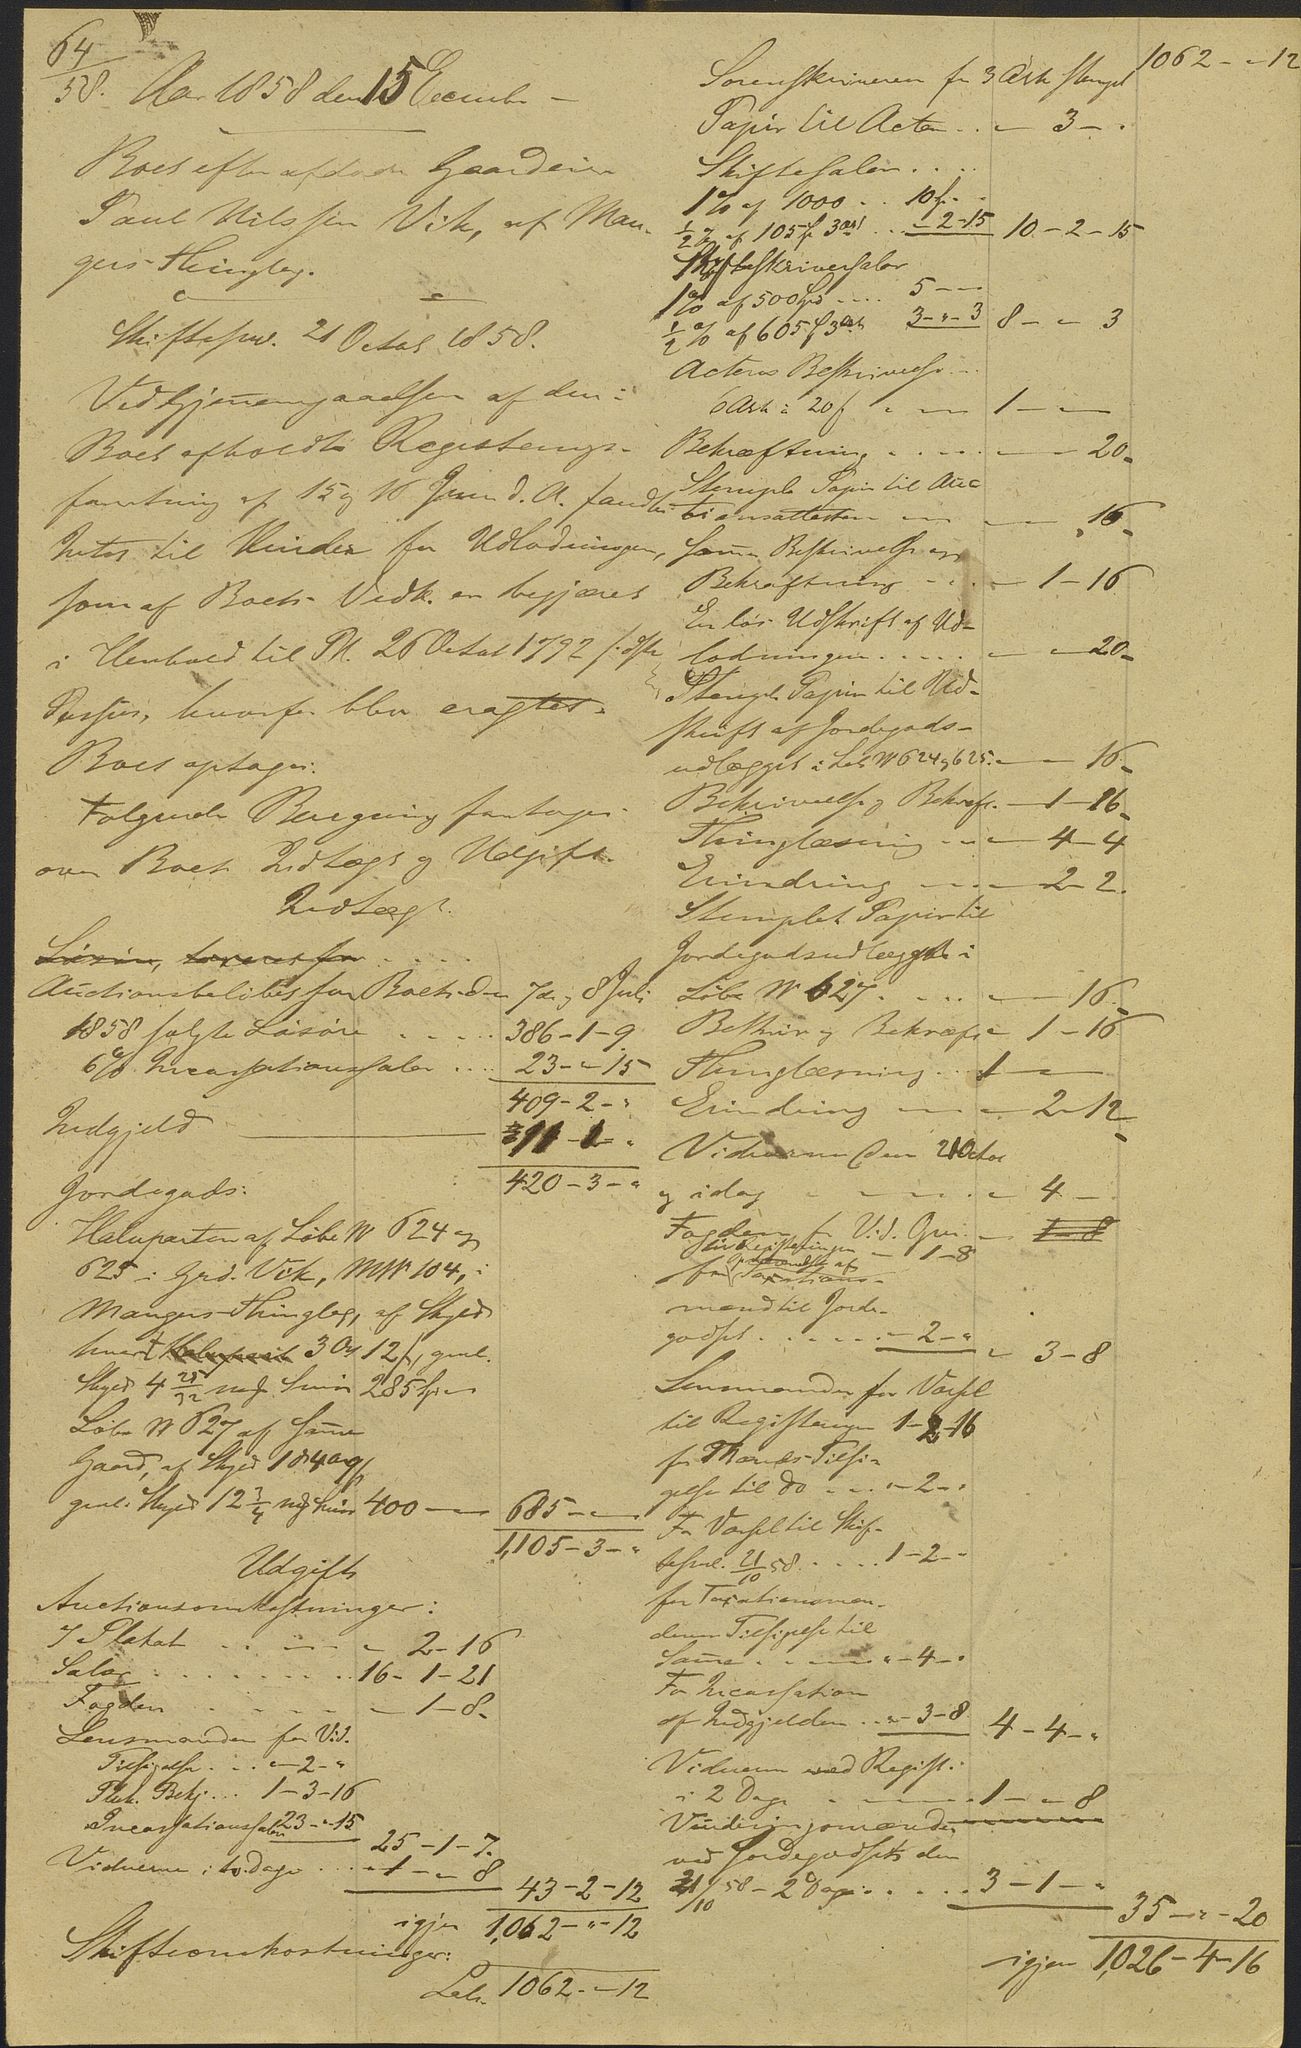 64
58. Aar 1858 den 15 Decembr –
Boet efter afdøde Gaardeier
Paul Nilssen Vik, af Man-
gers Thinglag.
Skiftesml. 21 Octob 1858.
Ved Gjennemgaaelsen af den i
Boet afholdte Registerings-
forretning af 15 og 16 Juni d. A. fandtes
Intet til Hinder for Udlodningen,
som af Boets Vedk. er begjæret
i Henhold til Pl. 26 Octob 1792
Passus, hvorfor blev eragtet:
Boet optages.
Følgende Beregning foretages
over Boets Indtægt og Udgift.
Indtægt.
Løsøre,
Auctionsbeløbet for Boets den 7de og 8 Juli
1858 solgte Løsøre . . . . . 386 – 1 – 9.
6% Incassationssalær . . . . 23 – " – 15
409 – 2 – "
Indgjeld 11 – 1 – "
420 – 3 – "
Jordegods:
Halvparten af Løbe No 624 og
625 i Grd. Vik, MNo 104, i
Mangers Thinglag, af Skyld
hvert 3 Ort 12 s, gml.
Skyld 4 25/32 mkf Smør 285 Spd
Løbe No 627 af samme
Gaard, af Skyld
gml. Skyld 12 3/4 mkf Smør 400 – 685 – "
1,105 – 3 – "
Udgift
Auctionsomkostninger:
7 Plakat . . . . . – 2 – 16
Salær . . . . . . . 16 – 1 – 21
Fogden . . . . . – 1 – 8.
Lensmanden for Vid.
Tilsigelse . . . " – 2 – "
Plak. Bekj. . . 1 – 3 – 16
Incassationssalær 23 – " – 15
25 – 1 – 7.
Vidnerne i to Dage . . . 1 – " – 8
43 – 2 – 12
igjen 1,062 – " – 12
Skifteomkostninger:
Lat. 1062 – " – 12
1062 – " – 12
Sorenskriveren for 3 Ark stempl
Papir til Acten . . – 3 – .
Skiftesalær . . . .
1% af 1000 . . 10 . .
1/2 % af 105 3 ort . . – 2 – 15 10 – 2 – 15
Skifteskriversalær
1% af 500 Spd . . . . 5 – –
1/2 % af 605 3 ort 3 – " – 3 8 – " – 3
Actens Beskrivelse . .
6 Ark à 20 s " – – 1 – –
Bekræftning . . . . . – – 20.
Stempl. Papir til Auc
tionsattesten – – – 16.
samme Beskrivelse og
Bekræftning – . . – 1 – 16
En løs Udskrift af Ud-
lodningen . . . . . – – 20.
Stempl. Papir til Ud-
skrift af Jordegods-
udlægget i Løb No 624 og 625. – – 16.
Beskrivelse og Bekræft. – 1 – 16.
Thinglæsning . . . – 4 – 4
Erindring – – – – 2 – 2.
Stemplet Papir til
Jordegodsudlægget i
Løbe No 627. . . . . – – 16.
Beskriv og Bekræft – 1 – 16
Thinglæsning . . 1 – –
Erindring – – – 2 – 12
Vidnerne den 21 Octob
og idag – – – – . – 4 –
Fogden for Vid. – 1 – 8
Registeringen – 1 – 8
for af Taxations-
mænd til Jorde-
godset . . . . . . – 2 – "
" 3 – 8
Lensmanden for Varsel
til Registeringen 1 – 2 – 16
for Mænds Tilsi-
gelse til do . . . " – 2 – "
For Varsel til Skif-
tesml. 21/10 58 . . . . . 1 – 2 – "
for Taxationsmæn-
denes Tilsigelse til
samme . . – – " – 4 – "
For Incassation
af Indgjelden . . " – 3 – 8 4 – 4 – "
Vidnerne ved Regist.
i 2 Dage – – – – – 1 – " – 8
Vurderingsmænden
ved Jordegodsets den
21/10 58 – 2 Dage . . . . . 3 – 1 – "
35 – " – 20
igjen 1,026 – 4 – 16